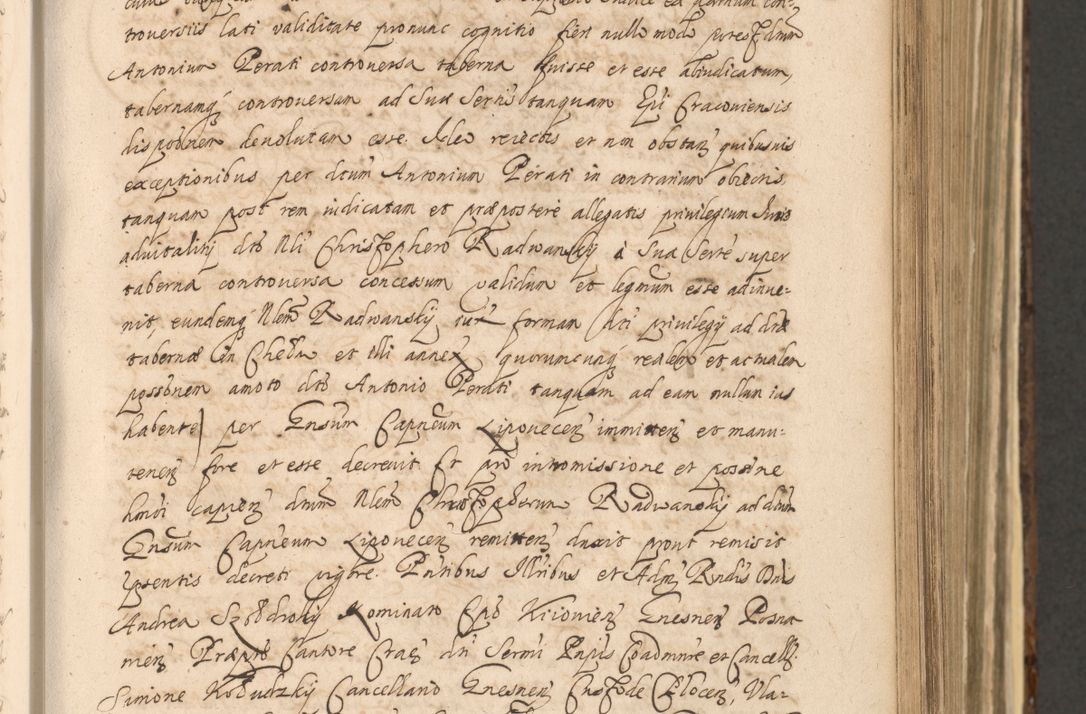 troversiis lati validitate pronunc cognitio fieri nullo modo potest dictum
Antonium Perati controversa taberna fuisse et esse abiudicatum,
tabernamq́ controversam ad Suæ Sernis tanquam Epi Cracoviensis
dispoōnem devolutam esse. Ideo reiectis et non obstañ quibusvis
exceptionibus per dtum Antonium Perati in contrarium obiectis,
tanquam post rem iudicatam et præpostere allegatis privilegium Juris
advitalitij dto Nli Christophero Radwansky à Sua Serte super
taberna controversa concessum validum et legmum esse adinve-
nit, eundemq Nlem Radwanskij, iux formam dti privilegij ad dtæ
tabernæ in et illi annex quorumcunq́ realem et actualem
possonem amoto dto Antonio Perati tanquam ad eam nullum ius
habente per Gnsum Capneum Lipovecen immitten et manu-
tenen fore et esse decrevit. Et pro intromissione et possone
hmoi capien dtum Nlem Christopherum Radwansky ad dtum
Gnsum Capneum Lipovecen remitten duxit prout remisit
pntis decreti vigore. Pntibus Illribus et Adm Rndis Dnis
Andrea Szoldrsky Nominato Epo Kiiovien Gnesnen Posna
nien Præpto Cantore Crac dti Sermi Coadmre et Cancell.
Simone Koludzkij Cancellario Gnesnen Custode Vla-